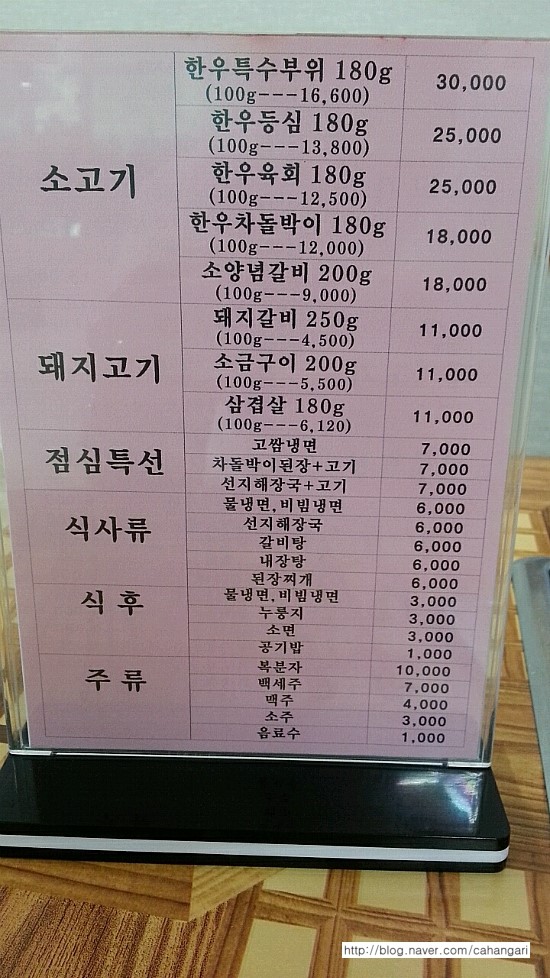 소고기
한우특수부위 180g 30,000
(100g---16,600)
한우등심 180g 25,000
(100g---13,800)
한우육회 180g 25,000
(100g---12,500)
한우차돌박이 180g 18,000
(100g---12,000)
소양념갈비 200g 18,000
(100g---9,000)
돼지고기
돼지갈비 250g 11,000
(100g---4,500)
소금구이 200g 11,000
(100g---5,500)
삼겹살 180g 11,000
(100g---6,120)
점심특선
고쌈냉면 7,000
차돌박이된장+고기 7,000
선지해장국+고기 7,000
식사류
물냉면,비빔냉면 6,000
선지해장국 6,000
갈비탕 6,000
내장탕 6,000
된장찌개 6,000
식 후
물냉면,비빔냉면 3,000
누룽지 3,000
소면 3,000
공기밥 1,000
주 류
복분자 10,000
백세주 7,000
맥주 4,000
소주 3,000
음료수 1,000
http://blog.naver.com/cahangari